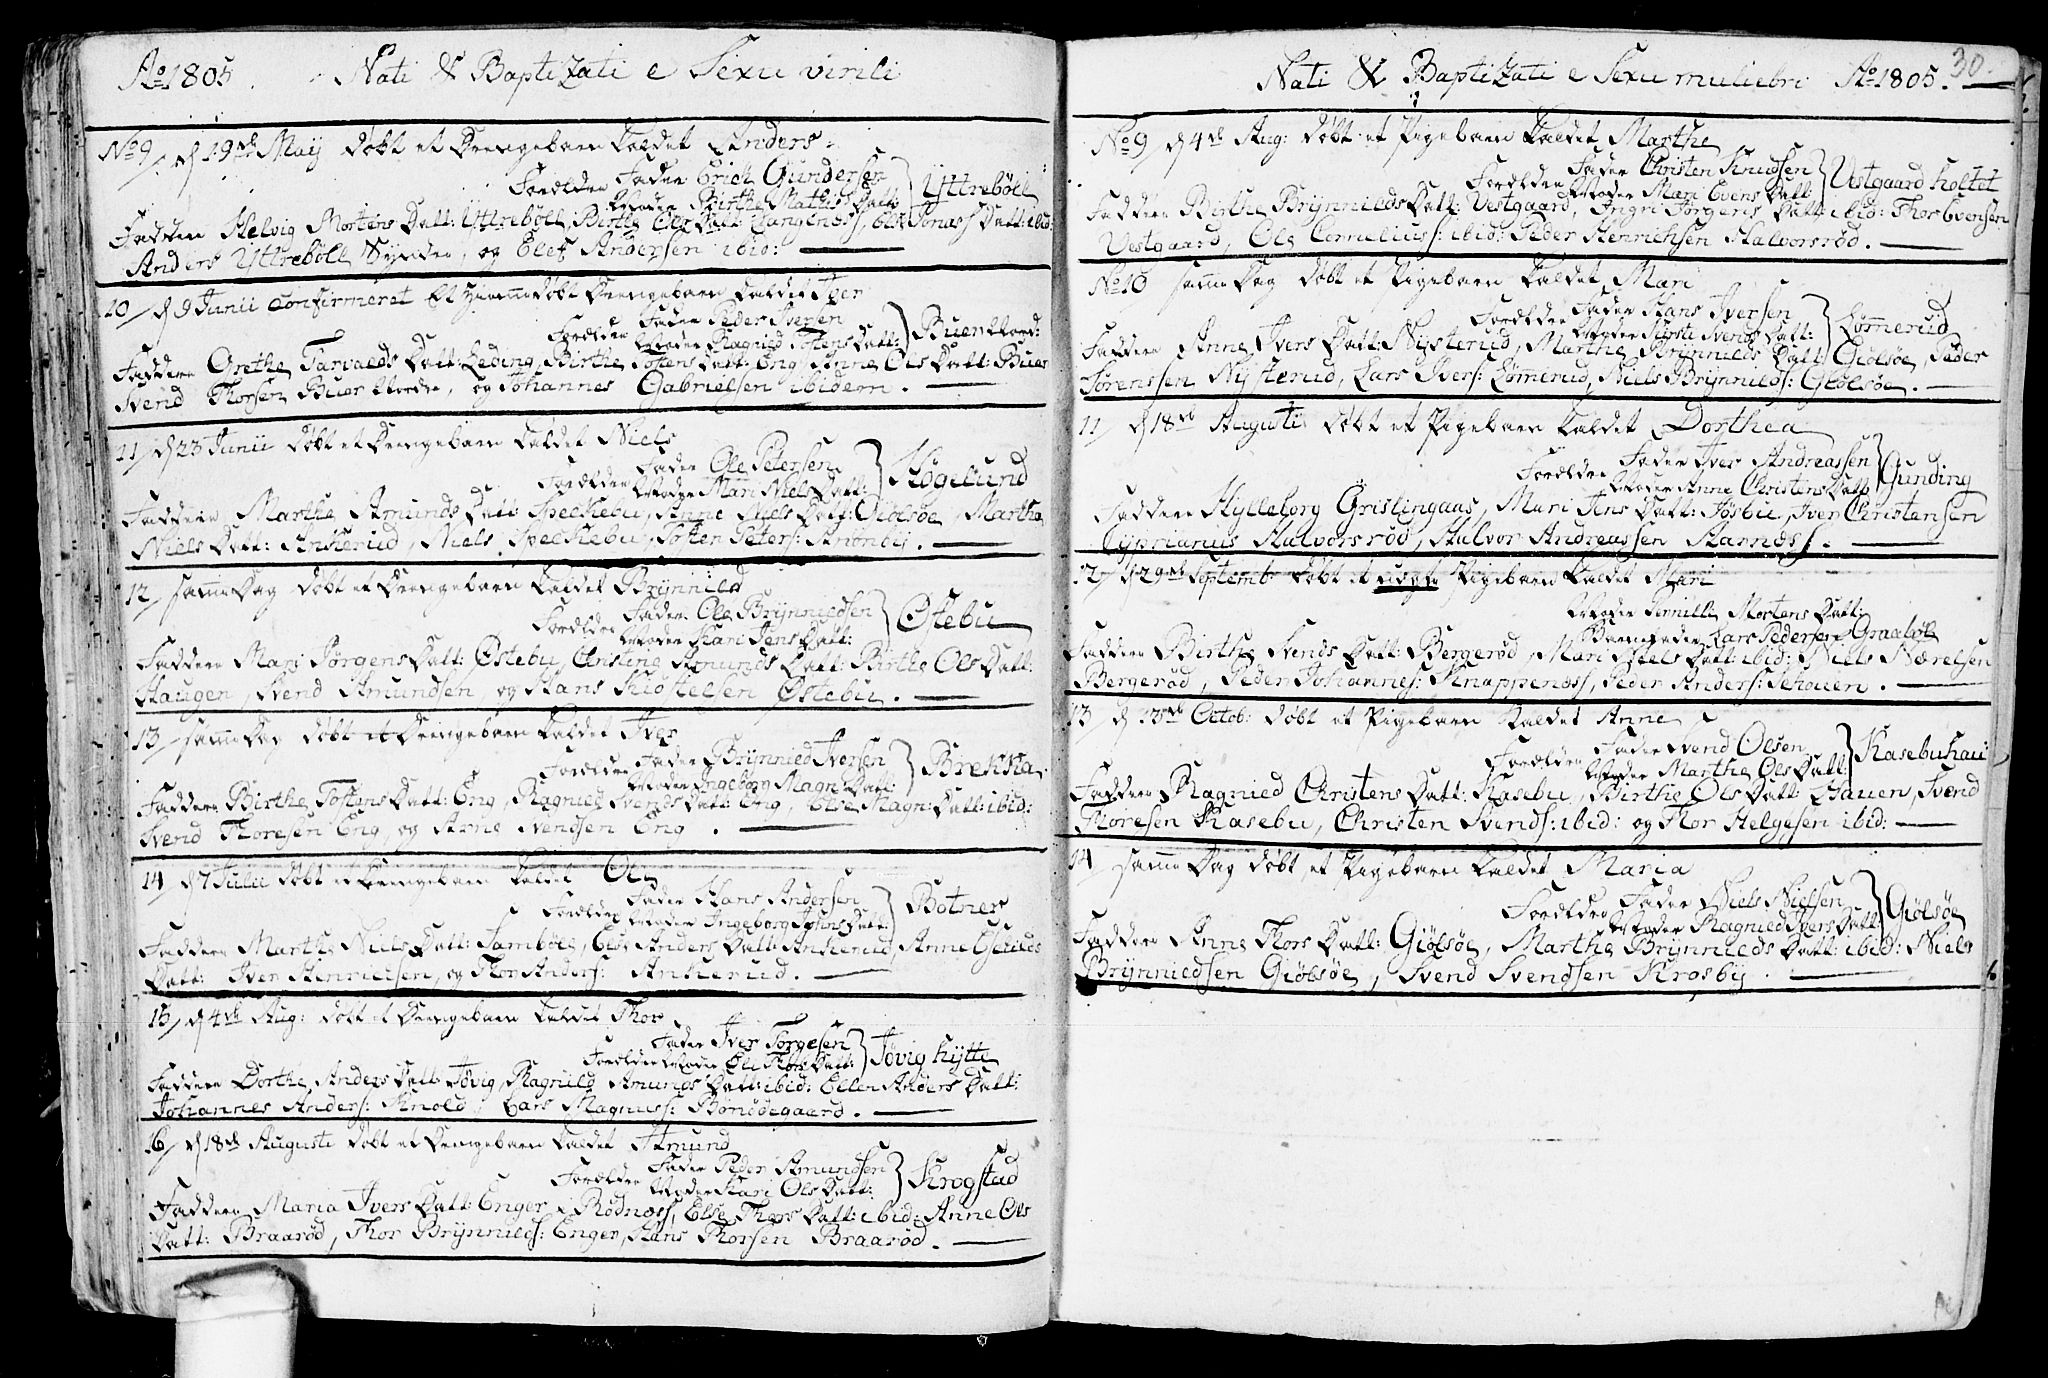 Ao 1805. Nati & Baptizati e Sexu virili
No 9/ d 19de Maij døbt et Drengebarn kaldet Anders.
Forældre Fader Erich Gundersen
Moder Birthe Mathis Datt: } Yttrebøll
Faddere Helvig Mortens Datt: Yttrebøll, Birthe Ols Datt: Langenæs, Else Jonas Datt: ibid:
Anders Yttrebøll Søndre, og Elef Andersen ibid:
10/ d 9 Junii confirmeret et hiemmedøbt Drengebarn kaldet Iver
Forældre Fader Peder Iversen
Moder Ragnild Tostens Datt: } Buer Nord:
Faddere Grethe Tarvalds Datt: Leding, Birthe Tostens Datt: Eng, Anne Ols Datt: Buer
Svend Thorsen Buer Nordre, og Johannes Gabrielsen ibidem.
11/ d 23 Junii døbt et Drengebarn kaldet Niels
Forældre Fader Ole Petersen
Moder Mari Niels Datt: } Høgelund
Faddere Marthe Amunds Datt: Speckebu, Anne Niels Datt: Giølsøe, Marthe
Niels Datt: Ankerud, Niels Speckebu, Tosten Peters: Kronbÿ.
12/ samme Dag døbt et Drengebarn kaldet Brÿnnild
Forældre Fader Ole Brÿnnildsen
Moder Kari Jens Datt: } Østebu
Faddere Mari Jørgens Datt: Østebu, Christine Amunds Datt: Birthe Ols Datt:
Haugen, Svend Amundsen, og Hans Kiøstelsen Østebu.
13/ samme Dag døbt et Drengebarn kaldet Iver
Forældre Fader Brÿnnild Iversen
Moder Ingeborg Magn: Datt: } Brekka
Faddere Birthe Tostens Datt: Eng, Ragnild Svends Datt: Eng, Else Magn: Datt: ibid:
Svend Thoresen Eng, og Arne Svendsen Eng.
14 d 7 Julii døbt et Drengebarn kaldet Ole
Forældre Fader Hans Andersen
Moder Ingeborg Johns Datt: } Botner
Faddere Marthe Niels Datt: Sambøle, Else Anders Datt: Ankerud, Anne
Datt: Iver Henrichsen, og Thor Anders: Ankerud.
15/ d 4de Aug: døbt et Drengebarn kaldet Thor
Fader Iver Torgesen
Forældre Moder Ole Thors Datt: } Tøvig hÿtte
Faddere Dorthe Anders Datt: Tøvig, Ragnild Amunds Datt: ibid: Ellen Anders Datt:
Johannes Anders: Knold, Lars Magnus: Bønødegaard.
16/ d 18de Augusti døbt et Drengebarn kaldet Amund
Forældre Fader Peder Amundsen
Moder Kari Ols Datt: } Krogstad
Faddere Maria Ivers Datt: Enger i Rødnæss, Else Thors Datt: ibid: Anne Ols
Datt: Braarød, Thor Brÿnnilds: Enger, Hans Thorsen Braarød.
Nati & Baptizati e Sexu muliebri Ao 1805. 30.
No 9 d 4de Aug: døbt et Pigebarn kaldet Marthe
Forældre Fader Christen Knudsen
Moder Mari Evens Datt: } Vestgaard holtet
Faddere Birthe Brÿnnilds Datt: Vestgaard, Ingri Torgers Datt: ibid: Thor Evensen
Vestgaard, Ole Cornelius: ibid: Peder Henrichsen Halvorsrød.
No 10 samme Dag døbt et Pigebarn kaldet Mari
Forældre Fader Hans Iversen
Moder Kirsti Svends Datt: } Lømerud
Faddere Anne Ivers Datt: Nÿsterud, Marthe Brÿnnilds Datt: Giølsøe, Peder
Sørenssen Nÿsterud, Lars Ivers: Lømerud, Niels Brÿnnilds: Giølsøe.
11/ d 18de Augusti døbt et Pigebarn kaldet Dorthea
Forældre Fader Iver Andreassen
Moder Anne Christens Datt: } Gunding
Faddere Hylleborg Gristingaas, Mari Jens Datt: Josbu, Iver Christensen
Cyprianus Halvorsrød, Halvor Andreassen Aarnæs.
12/ d 29de Septemb: døbt et uægte Pigebarn kaldet Mari
Moder Pernille Mortens Datt:
Barnefader Lars Pedersen Graabøl
Faddere Birthe Svends Datt: Bergerød, Mari Niels Datt: ibid: Niels Nærelsen
Bergerød, Peder Johannes: Knappenæss, Peder Anders: Schouen.
13/ d 13de Octob: døbt et Pigebarn kaldet Anne
Forældre Fader Svend Olsen
Moder Marthe Ols Datt: } Kasebuhau:
Faddere Ragnild Christens Datt: Kasebu, Birthe Ols Datt: Hauen, Svend
Thoresen Kasebu, Christen Svends: ibid: og Thor Helgesen ibid:
14 samme Dag døbt et Pigebarn kaldet Maria
Forældre Fader Niels Nielsen
Moder Ragnild Ivers Datt: } Giølsøe
Faddere Anne Thors Datt: Giølsøe, Marthe Brÿnnilds Datt: ibid: Niels
Brÿnnildsen Giølsøe, Svend Svendsen Krosbÿ.